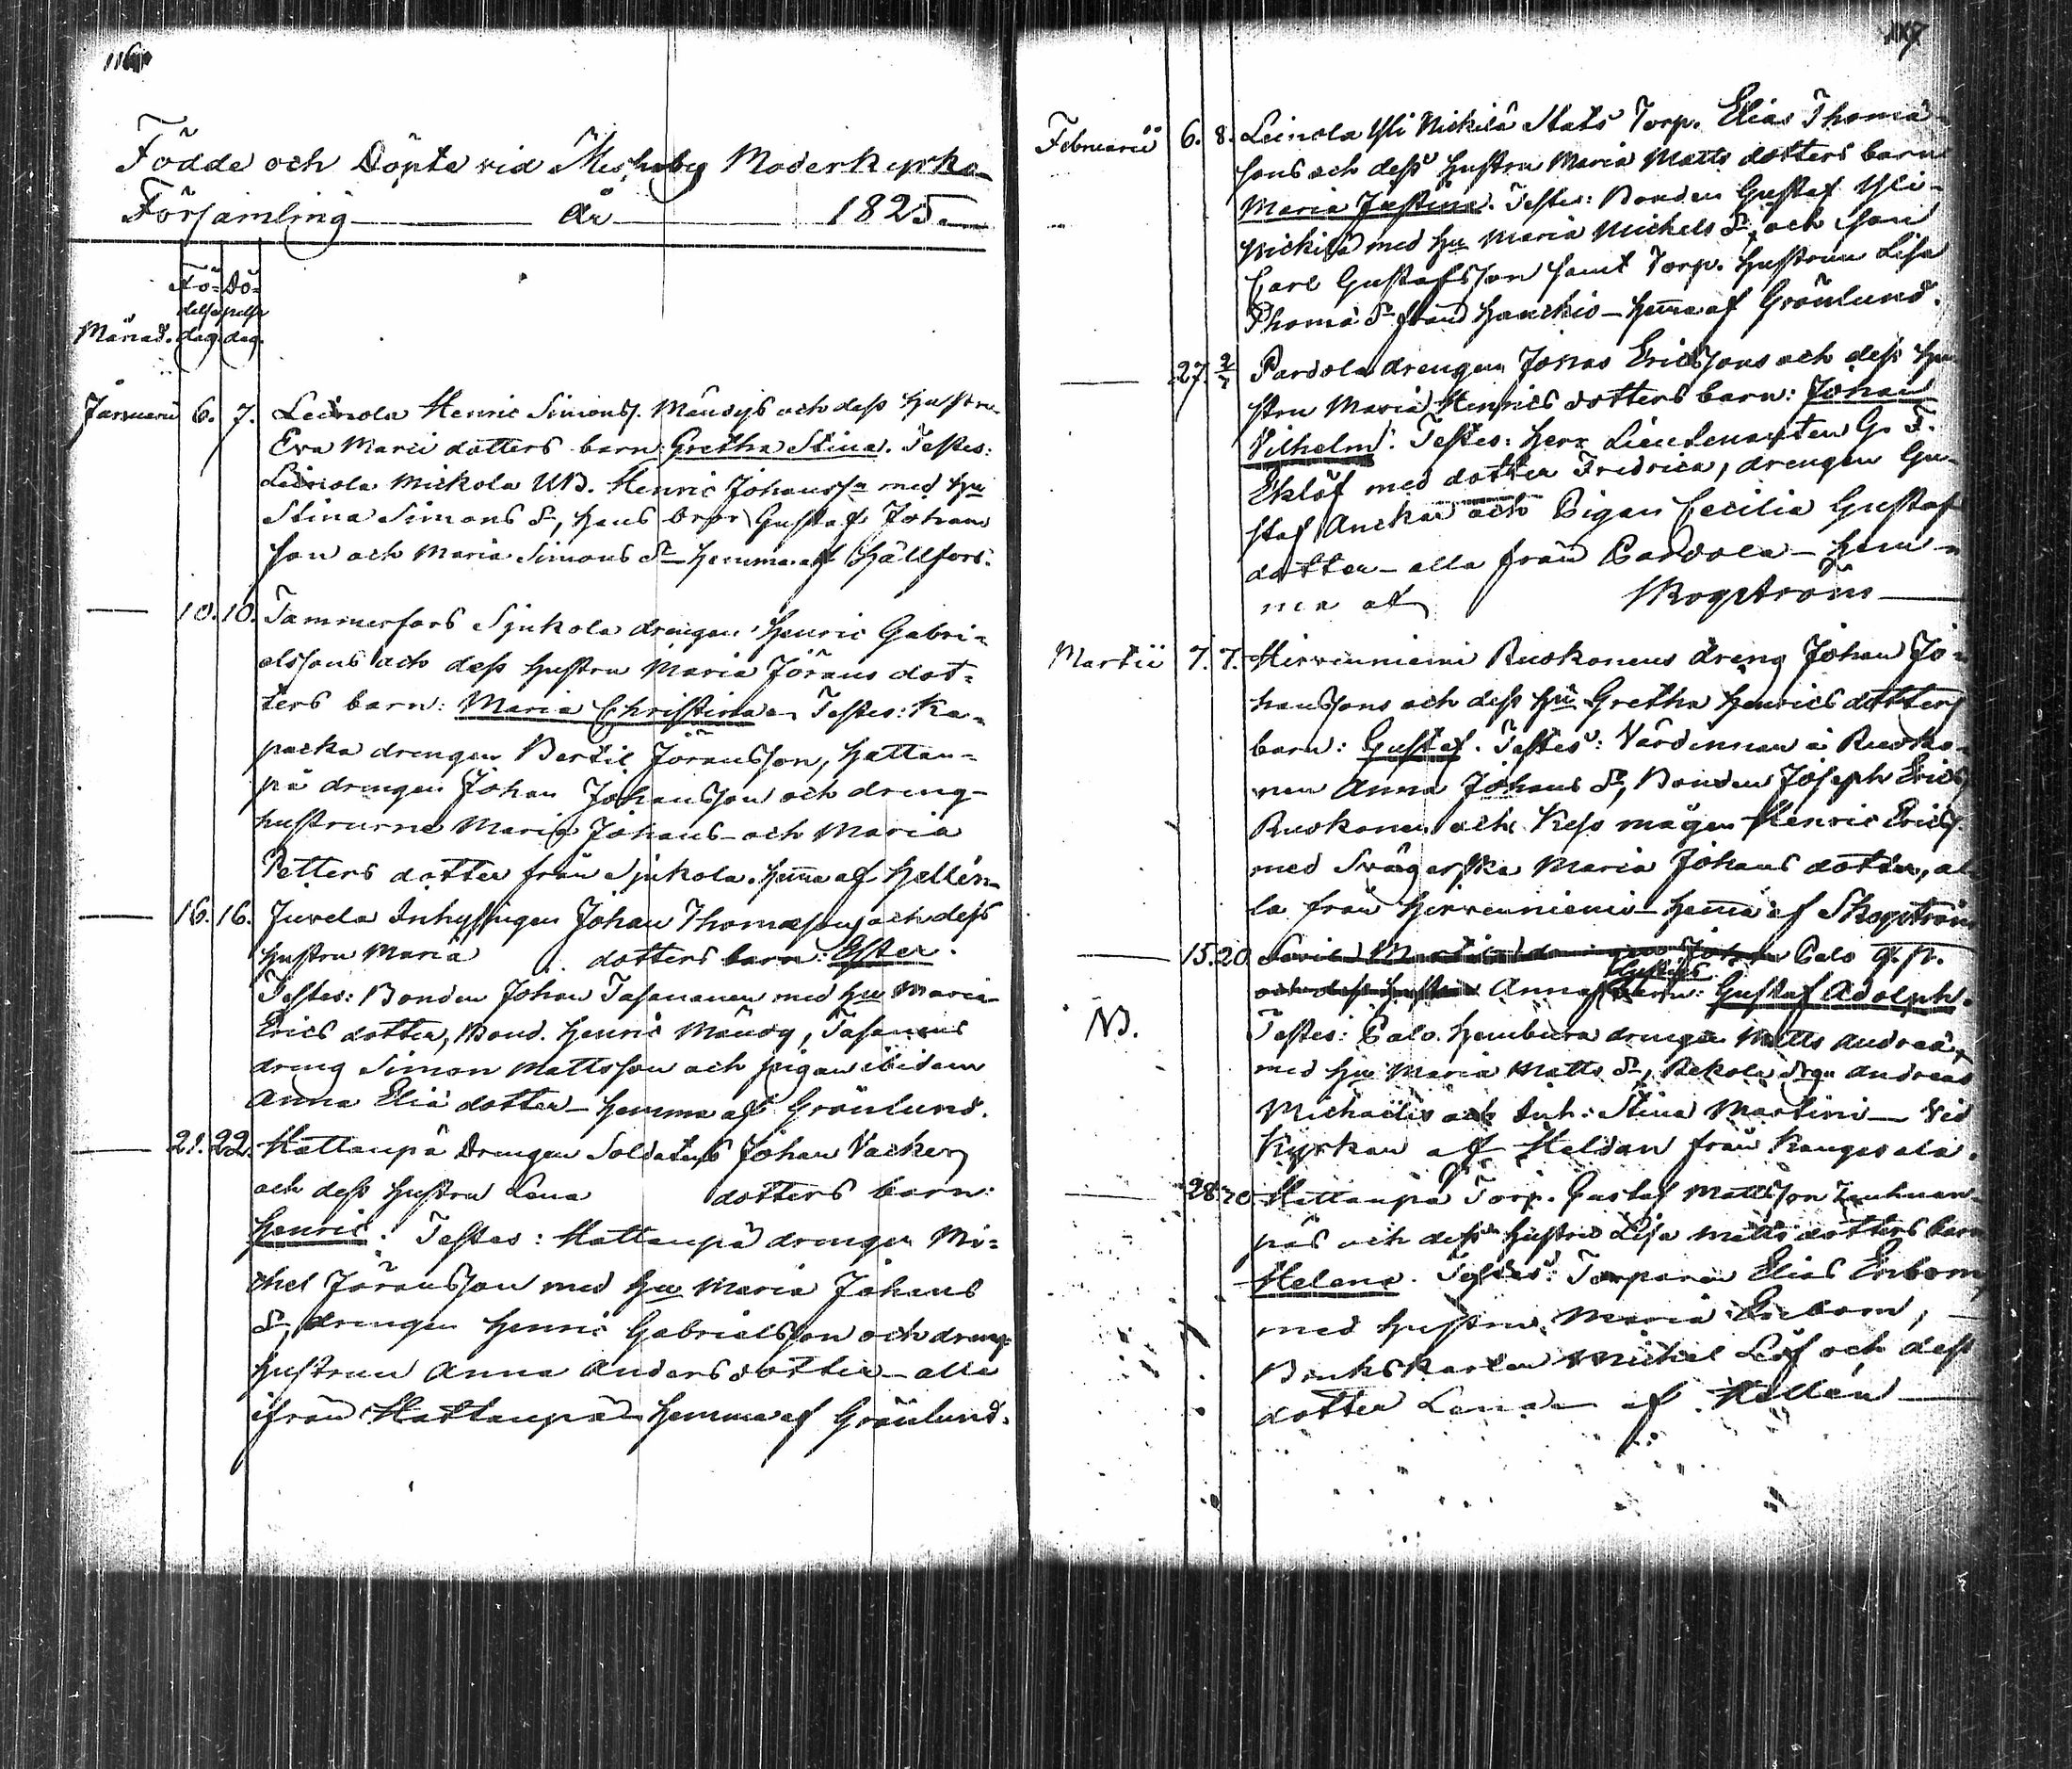 116
Födde och Döpte vid Messuby Moderkyrko
Församling år 1825
Fö= Dö=
delse pelse
Månad. dag. dag.
Januarii 6. 7. Leinola Henric Simonss. Mändys och dess hustru
Eva Marii dotters barn: Gretha Stina. Testes:
Leinola Mickola UB. Henric Johanss. med hu
Stina Simons dr, hans bror Gustaf Johans
son och Maria Simons dr hemma af Hällfors.
10. 10. Tammerfors Sjukola drengen Henric Gabri=
elssons och dess hustru Maria Jörans dot=
ters barn: Maria Christina Testes: Ka=
packa drengen Bertil Jöransson, Hattan=
pä drengen Johan Johansson och dreng-
hustrurna Maria Johans- och Maria
Petters dotter från Sjukola. Hemma af Hellén
16. 16. Juvela Inhysingen Johan Thomæson och dess
hustru Maria dotters barn: Ester.
Testes: Bonden Johan Tasanen med hu Maria
Erics dotter, Bond. Henric Mändy, Tasanens
dreng Simon Mattsson och pigan ibidem
Anna Eliæ dotter - hemma af Grönlund.
21. 22. Hattanpä Drengen Soldatens Johan Vacker
och dess hustru Lena dotters barn:
Henric. Testes: Hattanpä drengen Mi=
chel Jöransson med hu Maria Johans
dr, drengen Henric Gabrielsson och dreng
hustrun Anna Anders dotter - alla
ifrån Hattanpä hemma af Grönlund.
117
Februarii 6. 8. Leinola Yli Nickilä Stats Torp. Elias Thomæ
sons och dess hustru Maria Matts dotters barn
Maria Justina. Testes: Bonden Gustaf Yli-
Nickilä med hu Maria Michels dr, och son
Carl Gustafsson samt Torp. hustrun Lisa
Thomæ dr från Hanckio - hemma af Grönlund.
27. 2/3 Pardola drengen Jonas Ericssons och dess hu
stru Maria Henrics dotters barn: Johan
Vilhelm. Testes: Herr Lieutenanten G. F.
Eklöf med dotter Fredrica, drengen Gu-
staf Anckar och Pigan Cecilia Gustaf
dotter - alla från Pardola - hem-
ma af Skogström
Martii 7. 7. Hirvenniemi Ruokonens dreng Johan Jo=
hanssons och dess hu Gretha Henrics dotters
barn: Gustaf. Testes: Värdinnan å Ruoko-
nen Anna Johans dr, Bonden Joseph Erics
Ruokonen och mågen Henric Erics
med Svägerska Maria Johans dotter, al
la från Hirvenniemi - hemma af Skogström
15. 20 Johan Palo
och dess hustru Anna barn: Gustaf Adolph.
NB. Testes: Palo Hembura drengen Matts Andreæ
med hu Maria Matts dr, Rekola drgn Andreas
Michaelis och Inh: Stina Martini - Vid
Kyrkan af Heldan från Kangasala.
28. 20 Hattanpä Torp. Gustaf Mattsson
pääs och dess hustru Lisa Matts dotters barn
Helena. Testes: Torparen Elias Enbom
med hustru Maria Enbom,
Bruks Karlen Michel Löf och dess
dotter Lena af Hellén